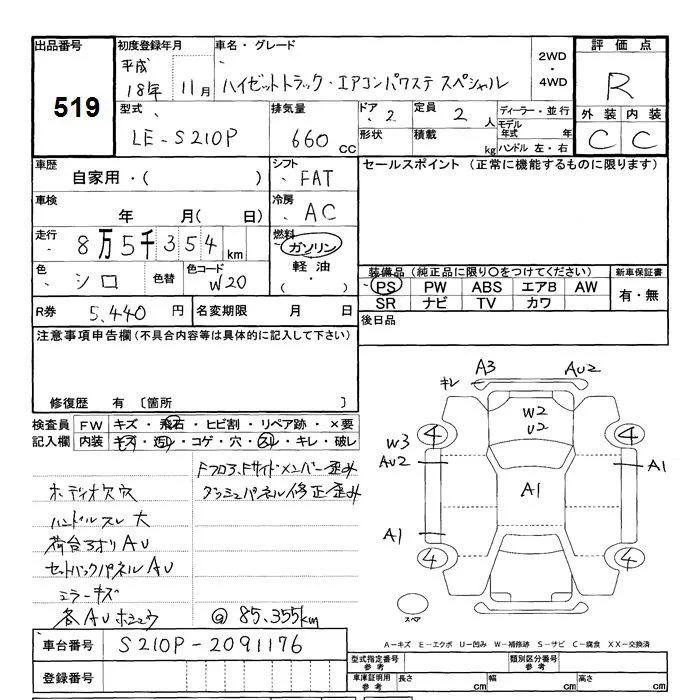 出品番号
519
初度登録年月
平成
18年 11月
車名・グレード
ハイゼットトラック・エアコンパワステ スペシャル
2WD
・
4WD
評価点
R
外装 内装
C C
型式
LE-S210P
排気量
660 CC
ドア 2
定員 2 人
形状
積載 kg
ディーラー・並行
モデル年式 年
ハンドル 左・右
車歴
自家用・( )
シフト
FAT
セールスポイント (正常に機能するものに限ります)
車検
年 月( 日)
冷房
AC
走行
8万5千354km
燃料
ガソリン
軽油
・( )
色
シロ
色替
色コード
W20
装備品(純正品に限り○をつけてください)
新車保証書
PS PW ABS エアB AW
有・無
SR ナビ TV カワ
R券 5,440 円
名変期限 月 日
後日品
注意事項申告欄(不具合内容等は具体的に記入して下さい)
修復歴 有 〔箇所 〕
検査員 FW キズ・飛石・ヒビ割・リペア跡・×要
記入欄 内装 キズ・汚レ・コゲ・穴・スレ・キレ・破レ
Fフロア、Fサイドメンバー歪み
ダッシュパネル修正歪み
ボディオ穴穴
ハンドルスレ大
荷台アオリAU
セットバックパネルAU
ミラーキズ
各AUホシュウ
@85.355km
車台番号 S210P-2091176
登録番号
キレ A3 AU2
W2
U2
4 4
W3
AU2
A1
A1
A1
4 4
スペア
A−キズ E−エクボ U−凹み W−補修跡 S−サビ C−腐食 XX−交換済
型式指定番号
参考
類別区分番号
参考
車庫証明用
参考
長さ cm
幅 cm
高さ cm